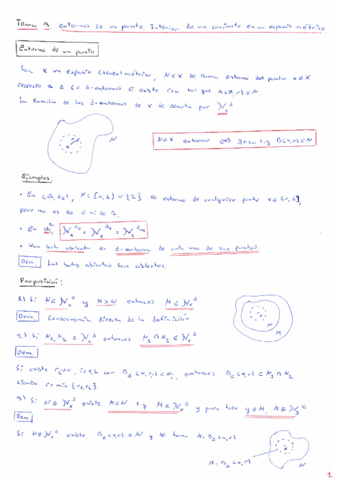 Tema 3: entornos de un punto. Interior de un conjunto en un espacio métrico
Entorno de un punto
Sea X un espacio (pseudo)métrico, N⊂X se llama entorno del punto x∈X
respecto a d (o d-entorno) si existe r>0 tal que B_d(x,r)⊂N
La familia de los d-entornos de x se denota por 𝒩_x^d
N
N⊂X entorno ⟺ ∃r>0 t.q. B(x,r)⊂N
Ejemplos:
• En
es entorno de cualquier punto x∈(0,1),
pero no es de 0 ni de 2.
• En
• Una bola abierta es d-entorno de cada uno de sus puntos.
Dem Las bolas abiertas son abiertos.
Proposición:
1) Si N∈𝒩_x^d y M⊃N entonces M∈𝒩_x^d
Dem Consecuencia directa de la definición
2) Si N₁,N₂∈𝒩_x^d entonces N₁∩N₂∈𝒩_x^d
Dem
Si existe r_i>0, i=1,2 con B_d(x,r_i)⊂N_i, entonces B_d(x,r)⊂N₁∩N₂
siendo r=min{r₁,r₂}
3) Si N∈𝒩_x^d existe M⊂N t.q. M∈𝒩_x^d y para todo y∈M, M∈𝒩_y^d
Dem
Si N∈𝒩_x^d existe B_d(x,r)⊂N y se toma M=B_d(x,r)
N
M=B_d(x,r)
1